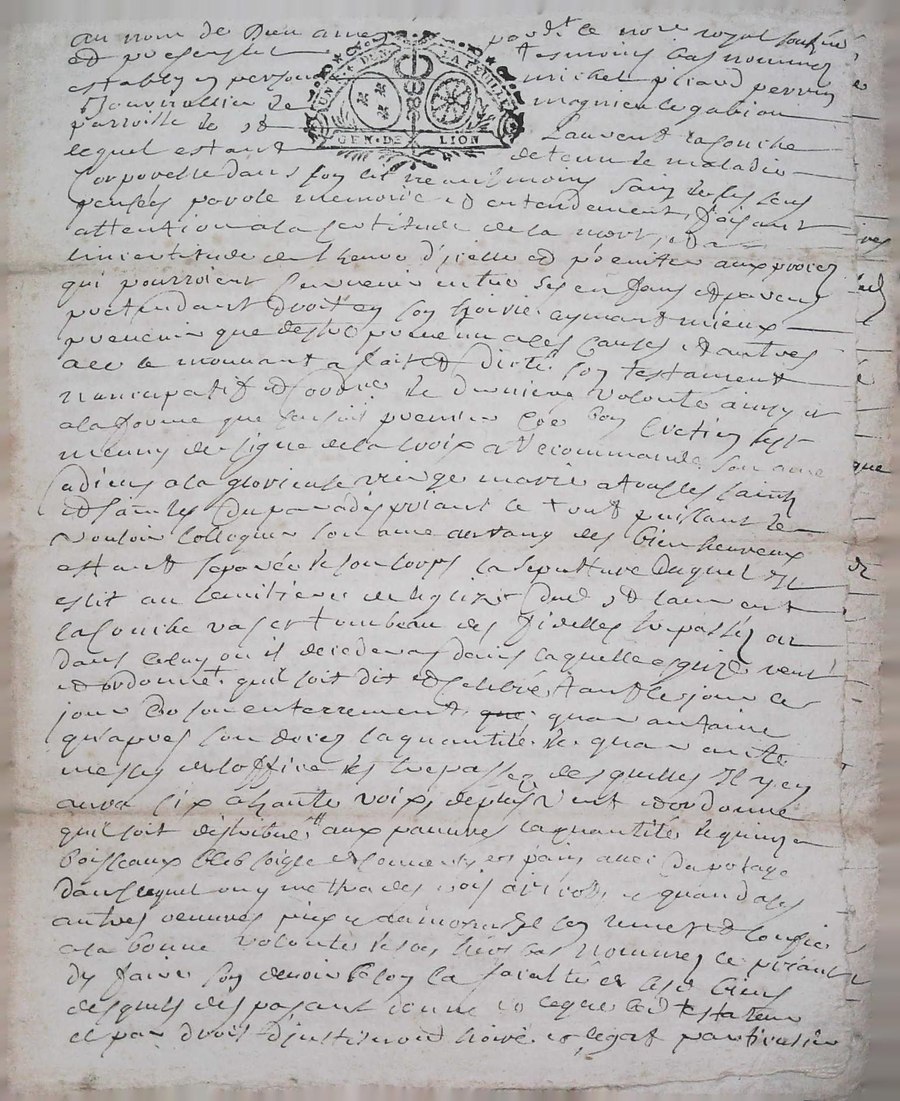 au nom de Dieu amen pardt le nore royal soubne
et presents tesmoins bas nommez
estably en personne michel piaud perrin
parroisse de st Laurent la conche
UN S. 4. DEN. LA FEUILLE
GEN. DE LION
lequel estant detenu de maladie
corporelle dans son lit neantmoins sain de ses sens
pensées parole memoire et entendement, faisant
attention a la sertitude de la mort, et a
linsertitude de lheure d'jcelle et preuiter aux proces
qui pourroient suruenir entre ses enfans et parens
pretendant droit en son hoirie aymant mieux
preuenir que destre preuenu a ces causes et autres
a ce le mouuant a fait et dicté son testament
nuncupatif et ordonce de derniere volonté ainsy et
a la forme que sensuit premier coe bon cretien sest
muny du signe de la croix a recommandé son ame
a dieu a la glorieuse vierge marie a tous les saints
et saintes du paradis priant le tout puissant de
vouloir colloquer son ame au rang des bien heureux
estant separée de son corps la sepulture duquel Il
eslit au semitiere de leglize dud st laurent
la conche vas et tombeau des fidelles trepassez ou
dans celuy ou il decedera dans laquelle esglize veut
et ordonne qu'il soit dit et celebré tant le jour
jour de son enterrement que quarantaine
qu'apres son deces la quantité de quarante
messes de loffice des trepassez desquelles Il y en
aura six a haute voix, de plus veut et ordonne
quil soit distribué aux pauures la quantité de quinze
boisseaux bled soigle et conuertis en pain auec du potage
dans lequel on y mettra des pois et quand a ses
autres oeuures pies et aumosnes Il sen remet et confie
a la bonne volonté de ses hers bas nommez le priant
dy faire son deuoir selon la faculté de ses biens
desquels disposant donne et legue led testateur
et par droit d'jnstitution hoirie et legat particulier